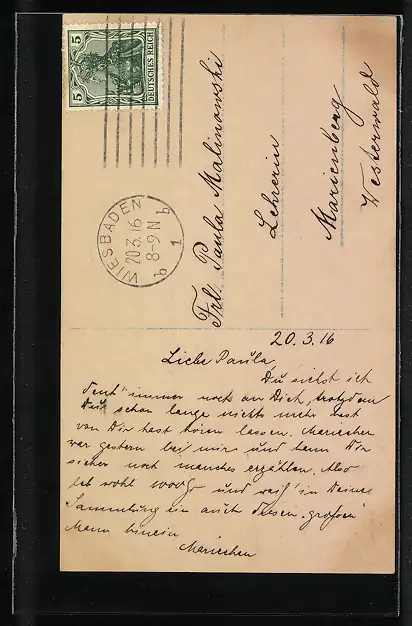 5
5
DEUTSCHES REICH
WIESBADEN
20.3.16
8-9 N
b 1 b
Frl. Paula Malinowski
Lehrerin
Marienberg
Westerwald
20.3.16
Liebe Paula,
Du siehst ich
denk' immer noch an Dich, trotzdem
Du schon lange nichts mehr hast
von Dir hast hören lassen. Mariechen
war gestern bei mir und kann Dir
sicher noch manches erzählen. Also
leb wohl und
Sammlung ein auch diesen "großen"
Mann hinein
Mariechen